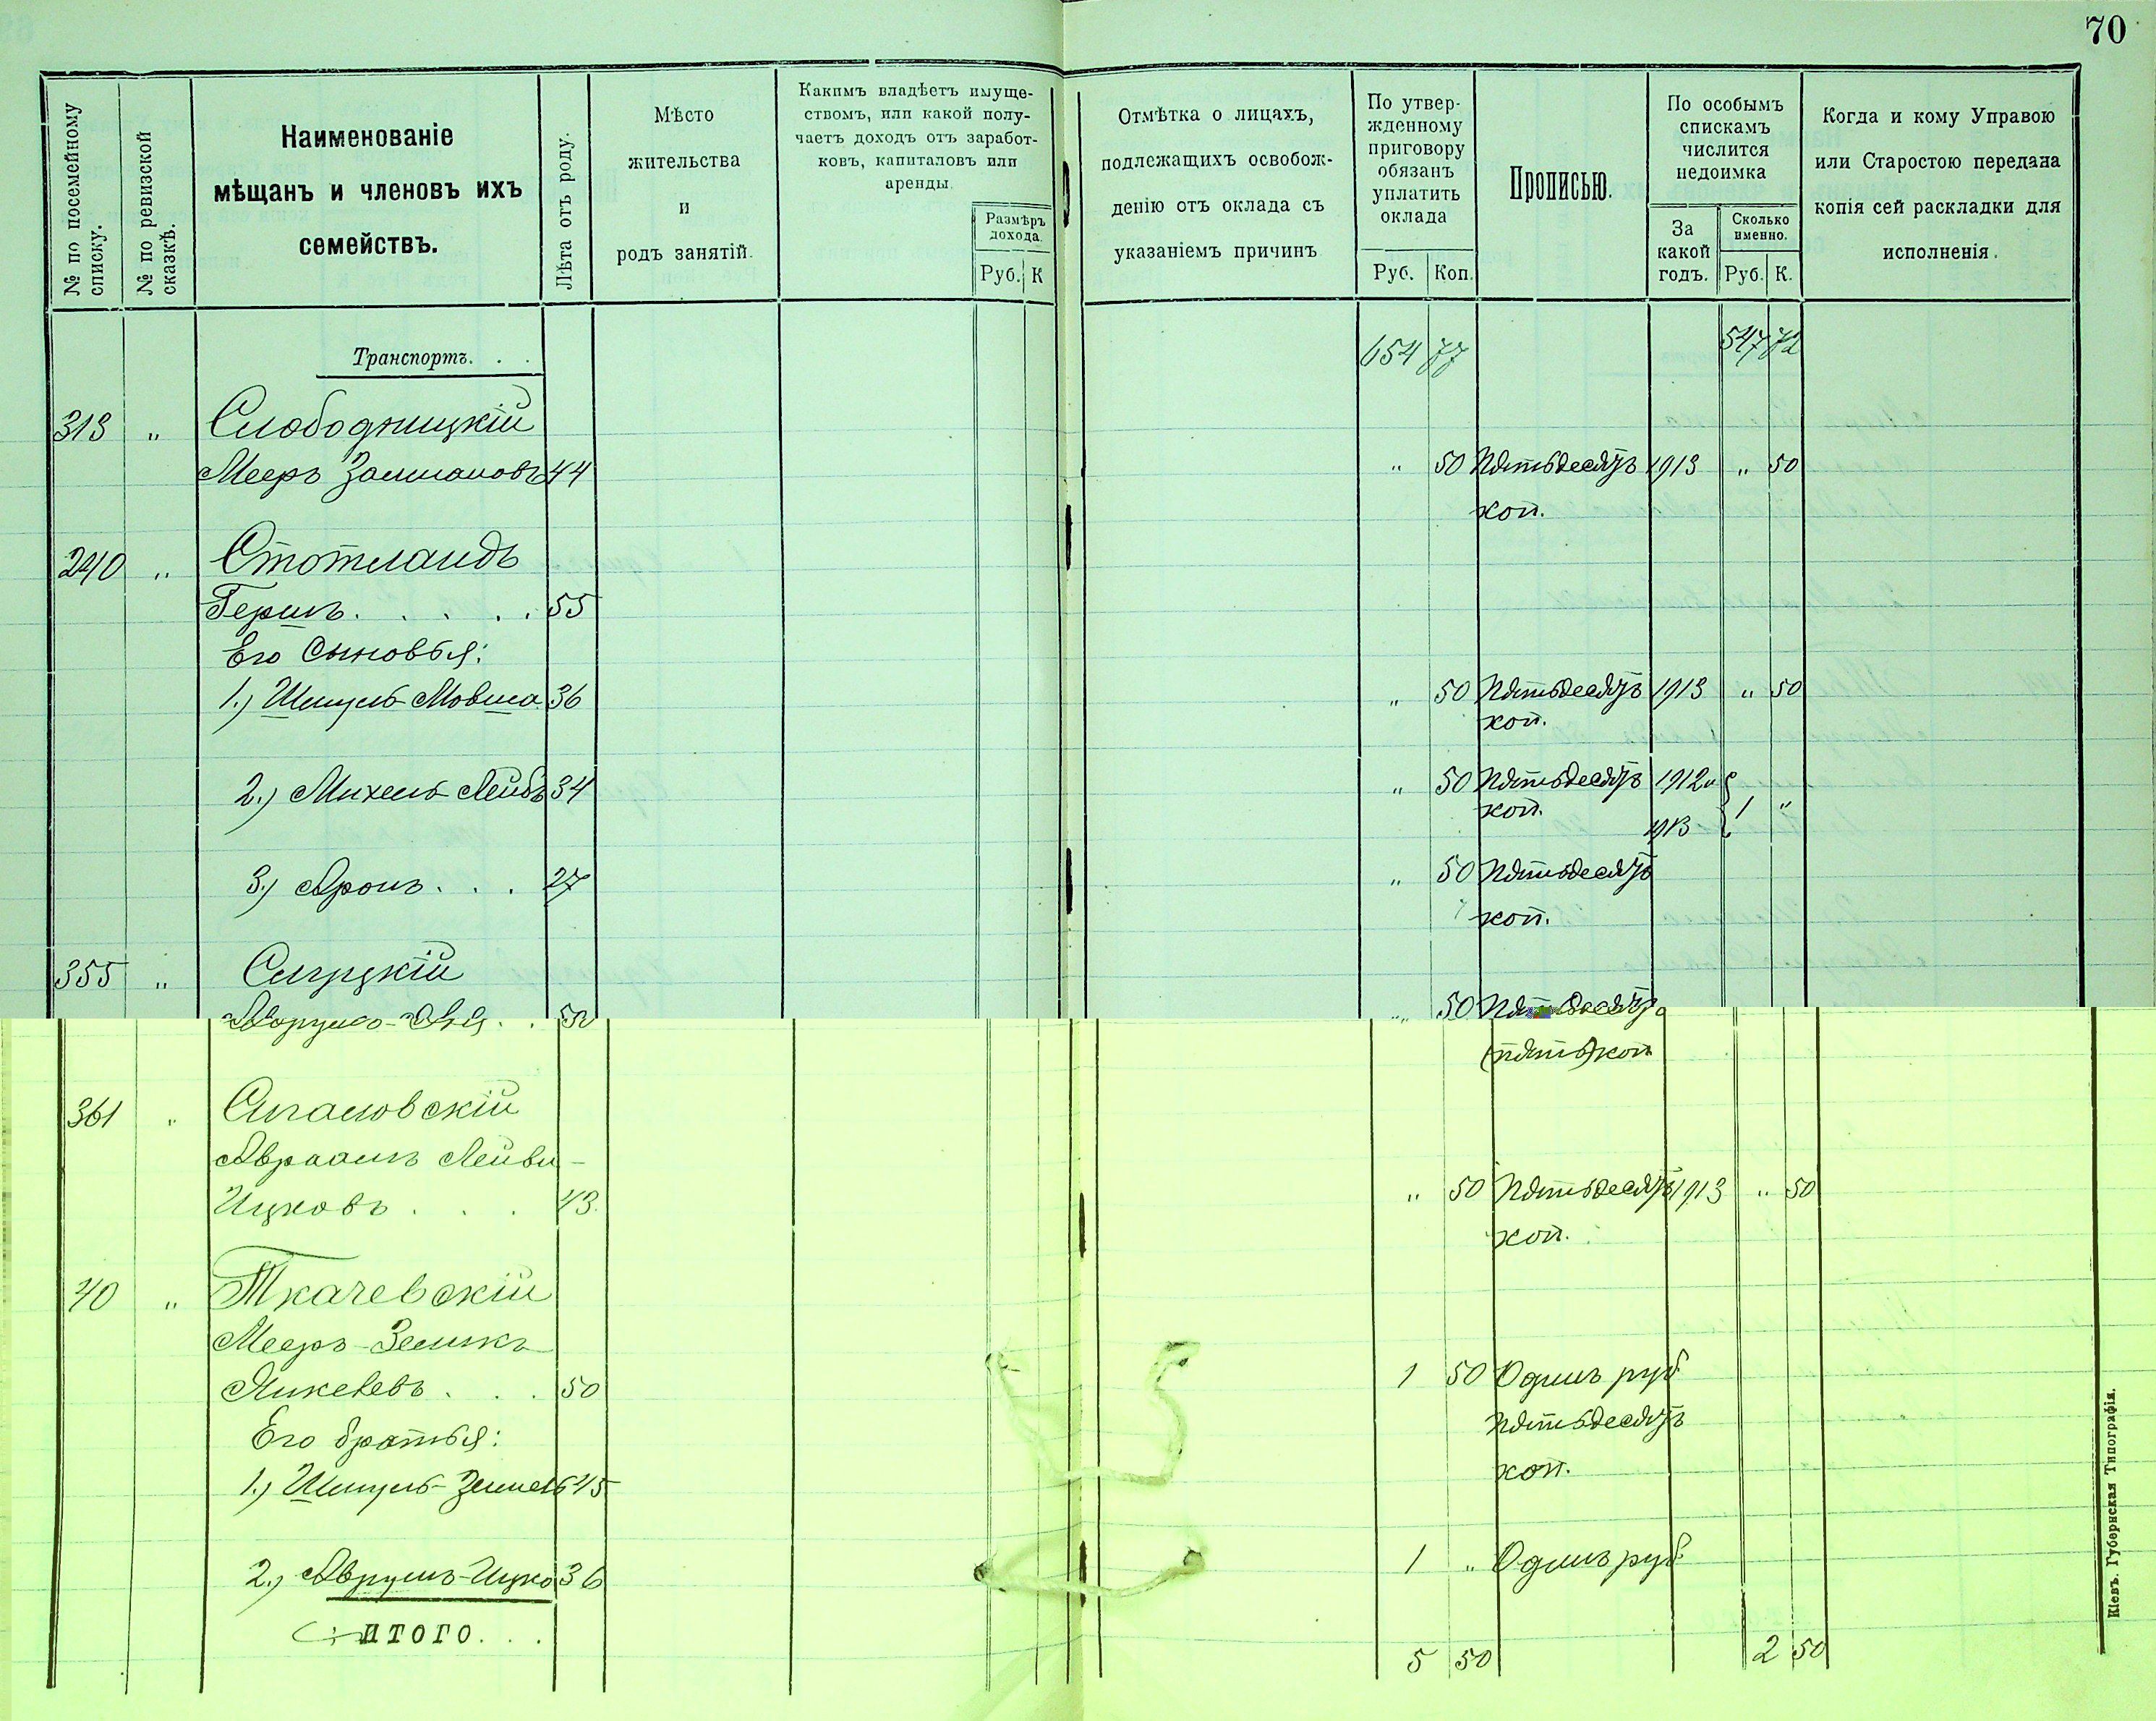 70
№ по посемейному списку.
№ по ревизской сказкѣ.
Наименованіе
мѣщанъ и членовъ ихъ
семействъ.
Лѣта отъ роду.
Мѣсто
жительства
и
родъ занятій.
Какимъ владѣетъ имуще-
ствомъ, или какой полу-
чаетъ доходъ отъ заработ-
ковъ, капиталовъ или
аренды.
Размѣръ
дохода.
Руб. К
Отмѣтка о лицахъ,
подлежащихъ освобож-
денію отъ оклада съ
указаніемъ причинъ
По утвер-
жденному
приговору
обязанъ
уплатить
оклада
Руб. Коп.
Прописью.
По особымъ
спискамъ
числится
недоимка
За
какой
годъ.
Сколько
именно.
Руб. К.
Когда и кому Управою
или Старостою передана
копія сей раскладки для
исполненія.
Транспортъ. . . 654 77 547 72
313 " Слободницкій
Мееръ Залмановъ 44 " 50 Пятьдесятъ 1913 " 50
коп.
240 " Стотландъ
Гершъ. . . . . 55
Его Сыновья:
1.) Шмуль-Мовша 36 " 50 Пятьдесятъ 1913 " 50
коп.
2.) Михель-Лейбъ 34 " 50 Пятьдесятъ 1912 и 1 "
коп. 1913
3.) Аронъ. . . 27 " 50 Пятьдесятъ
коп.
355 " Слуцкій
50 Пятьдесятъ
(пять) коп
361 " Слаловскій
Авраамъ Лейви-
Ицковъ . . . 43. " 50 Пятьдесятъ 1913 " 50
коп.
40 " Ткачевскій
Мееръ-Зеликъ
. . . 50 1 50 Одинъ руб.
Пятьдесятъ
Его братья:
коп.
1.) Шмуль-Зимель 45
2.) Аврумъ-Ицко 36 1 " Одинъ руб.
ИТОГО. . . 5 50 2 50
Кіевъ. Губернская Типографія.